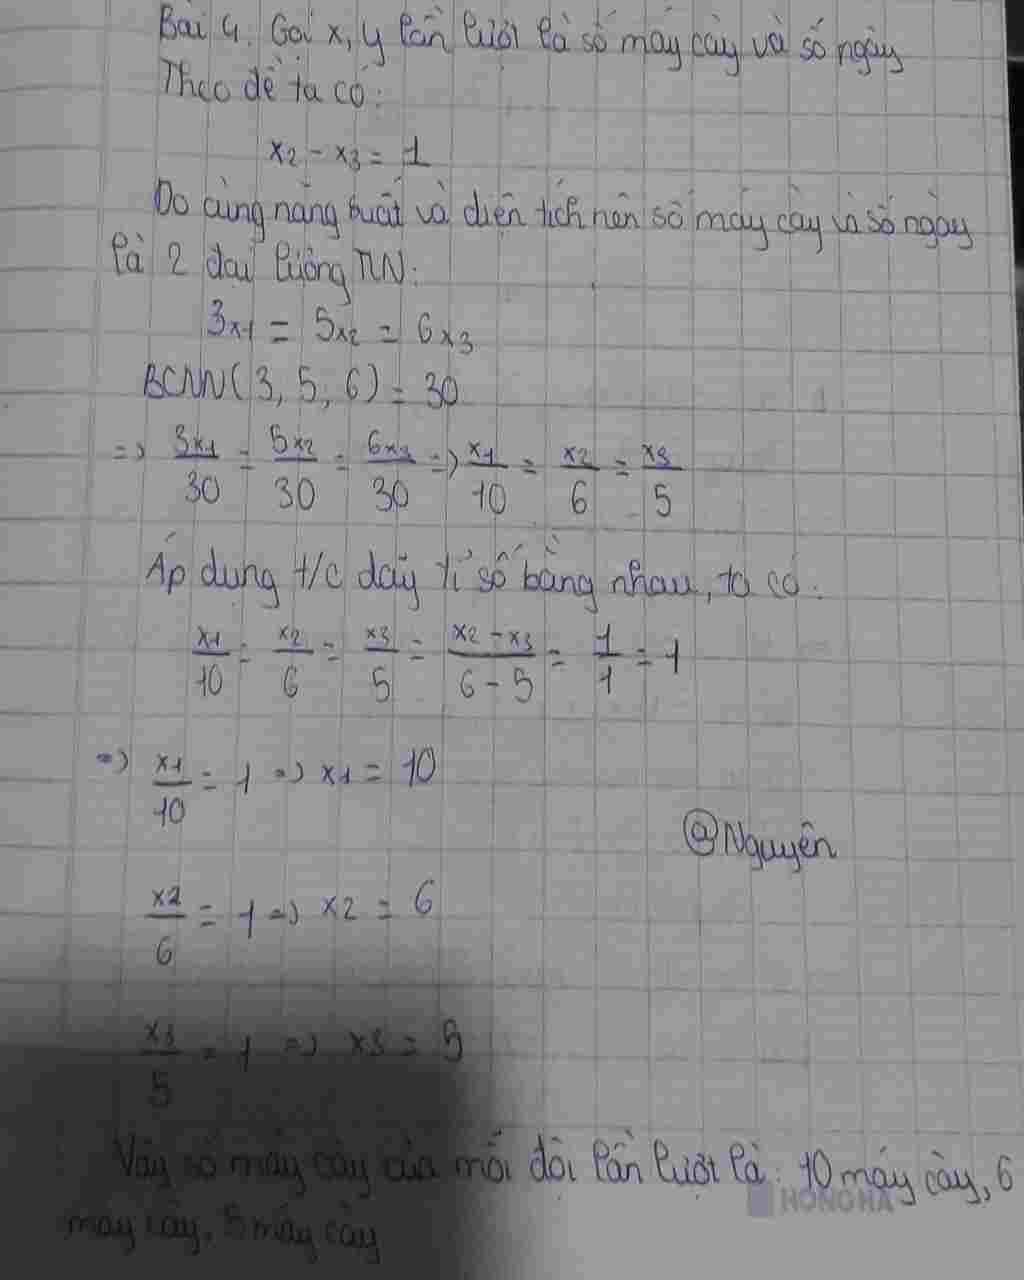 Bài 4. Gọi x, y lần lượt là số máy cày và số ngày
Theo đề ta có:
x2 - x3 = 1
Do cùng năng suất và diện tích nên số máy cày và số ngày
là 2 đại lượng TLN:
3x1 = 5x2 = 6x3
BCNN(3, 5, 6) = 30
=> 3x1/30 = 5x2/30 = 6x3/30 => x1/10 = x2/6 = x3/5
Áp dụng t/c dãy tỉ số bằng nhau, ta có:
x1/10 = x2/6 = x3/5 = x2 - x3/6 - 5 = 1/1 = 1
=> x1/10 = 1 => x1 = 10
@Nguyên
x2/6 = 1 => x2 = 6
x3/5 = 1 => x3 = 5
Vậy số máy cày của mỗi đội lần lượt là: 10 máy cày, 6
máy cày, 5 máy cày
HONG HA